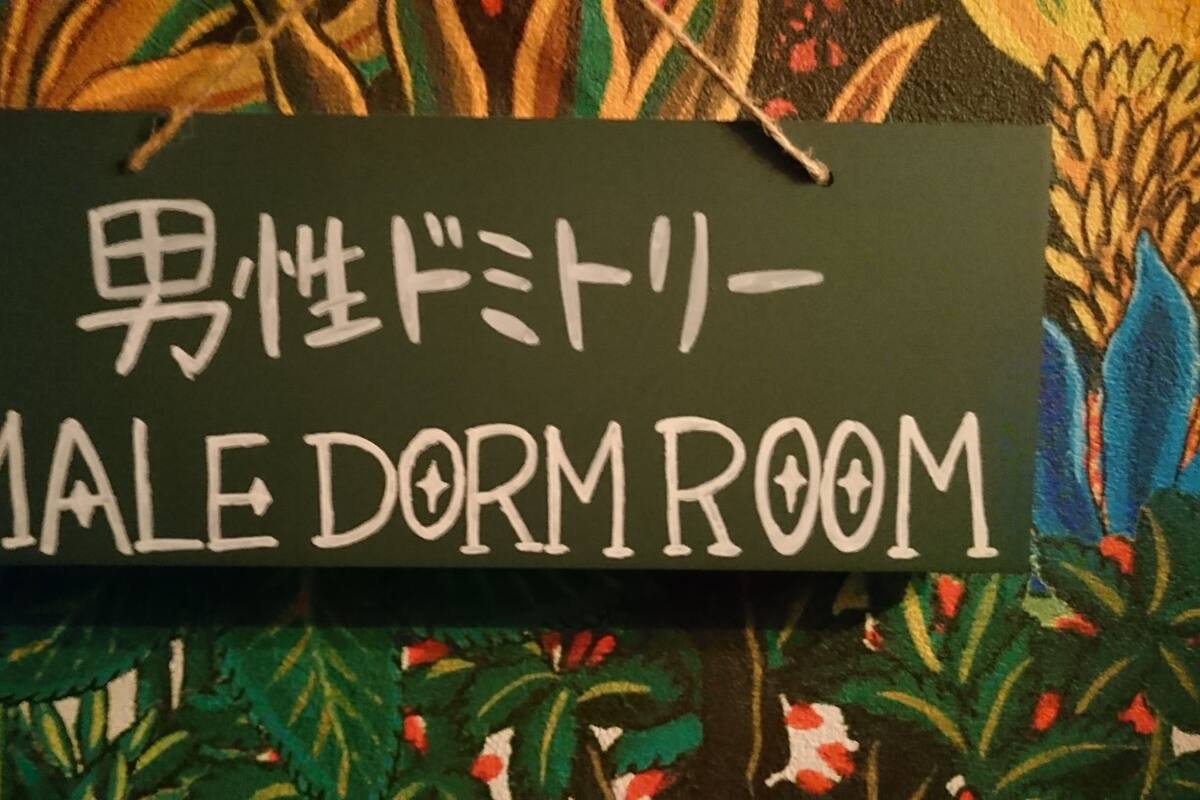 男性ドミトリー
MALE DORM ROOM